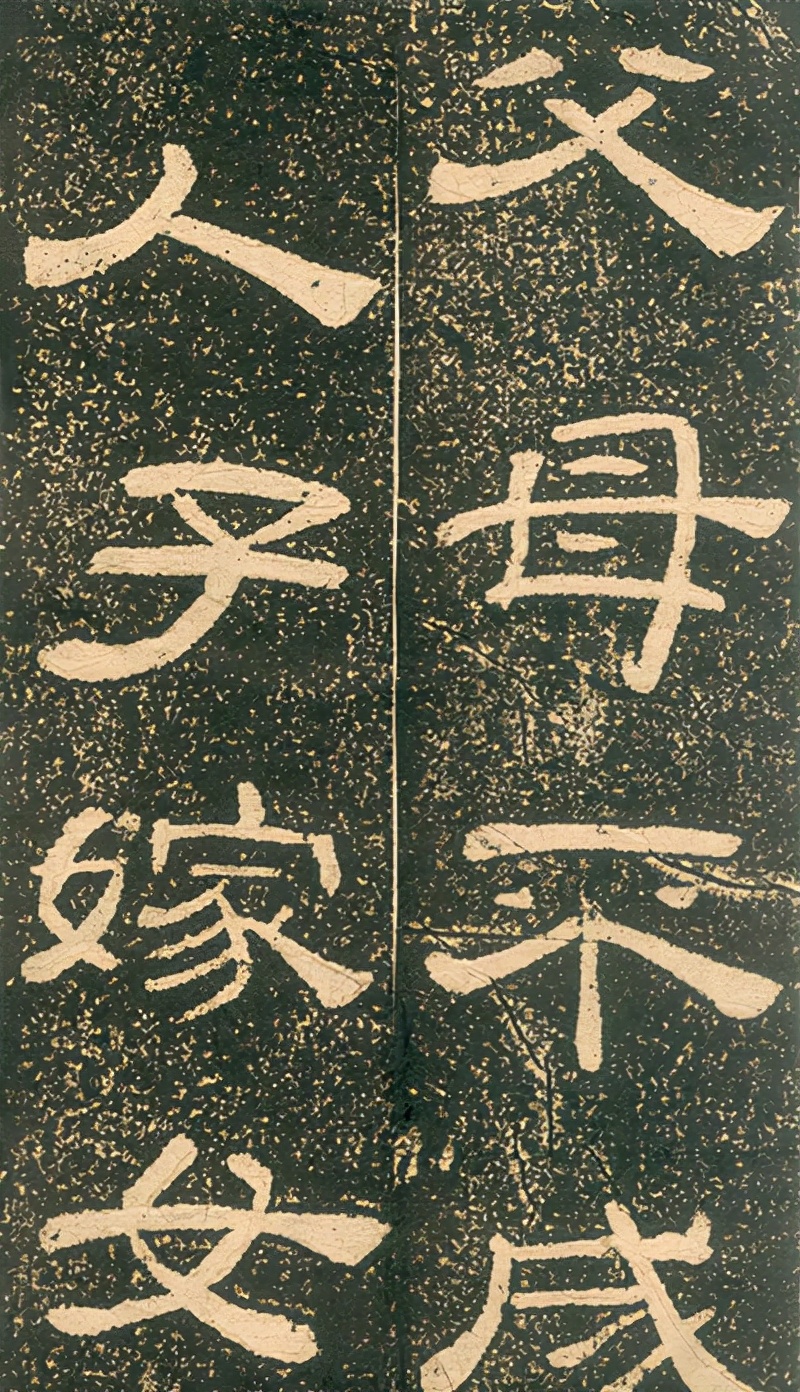 父母不
人子嫁女